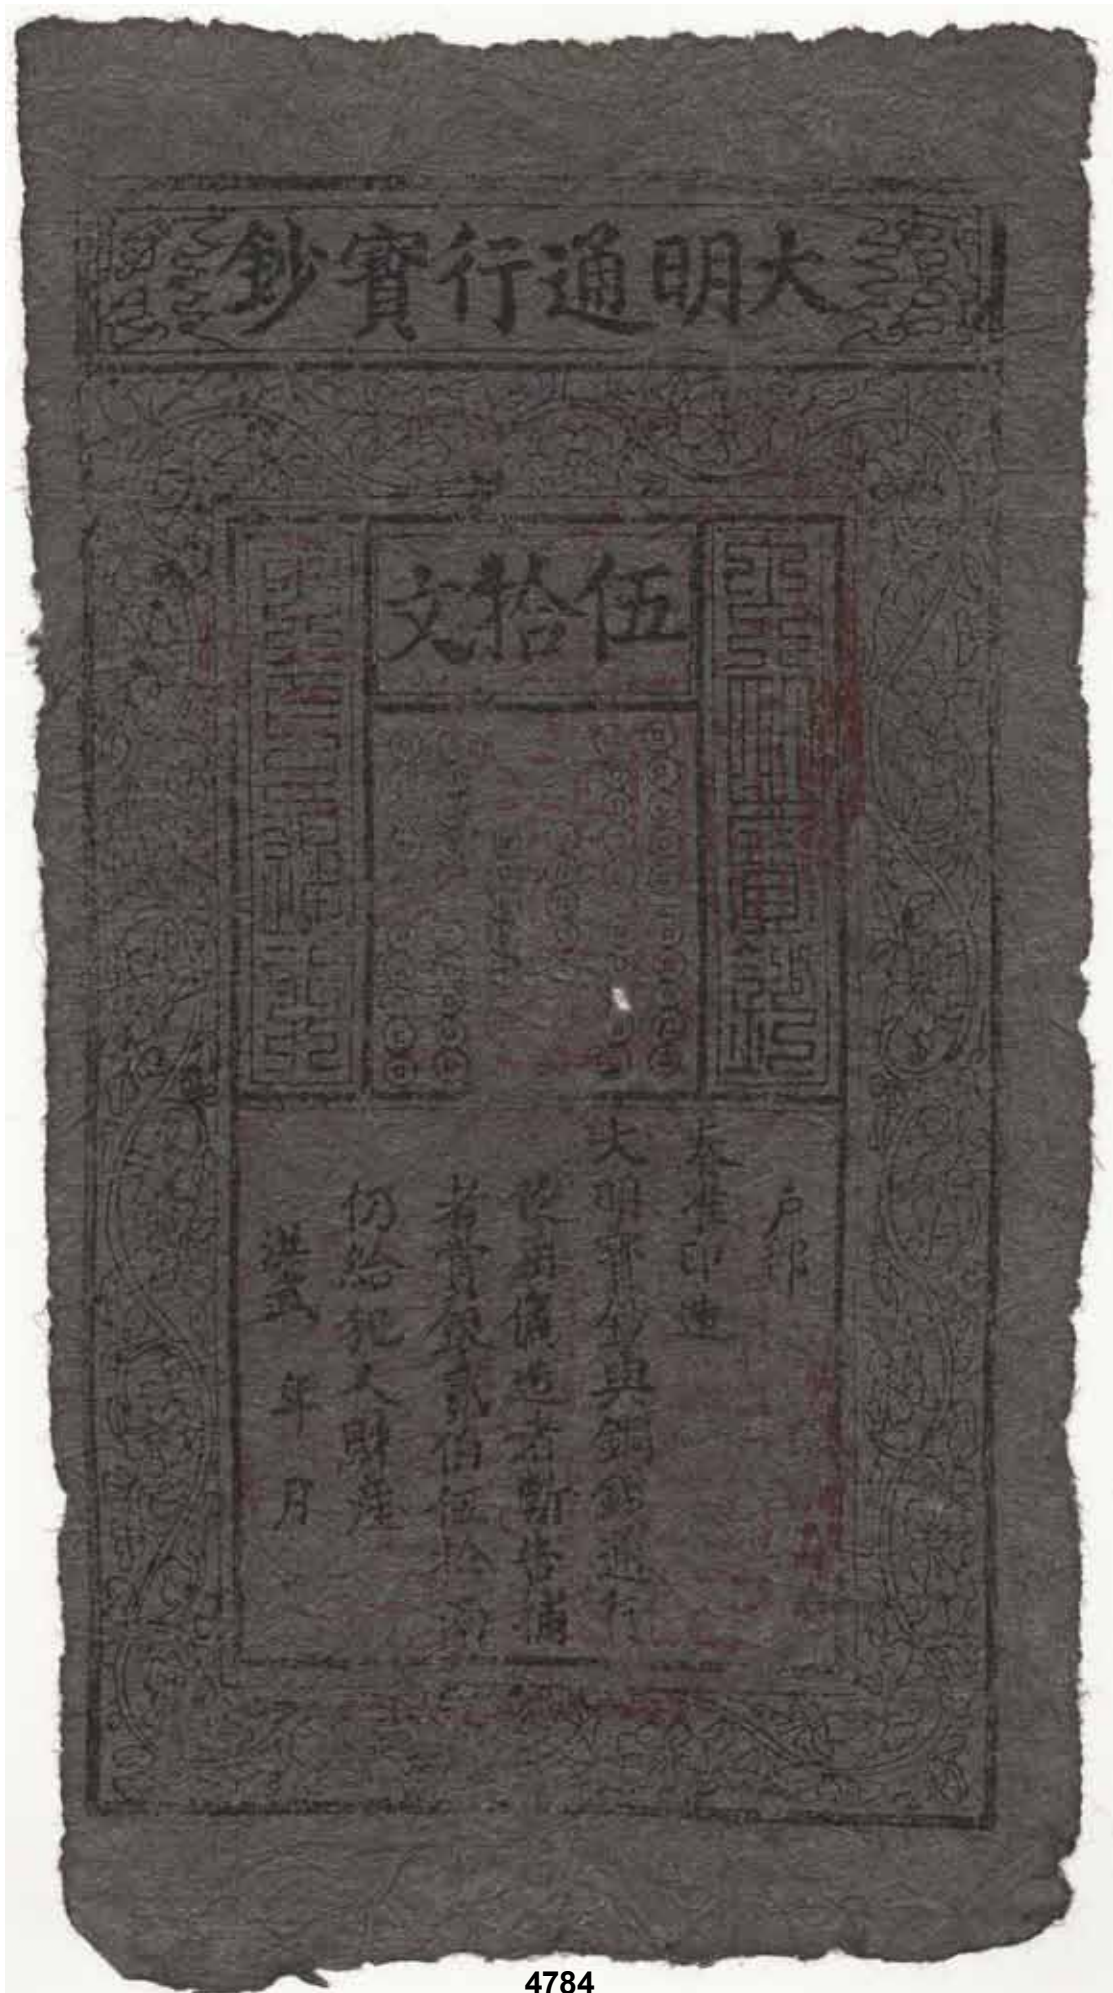 大明通行寶鈔
伍拾文
戶部
奏准印造
大明寶鈔與銅錢通行
使用偽造者斬告捕
者賞銀貳伯伍拾兩
仍給犯人財產
洪武 年 月
4784